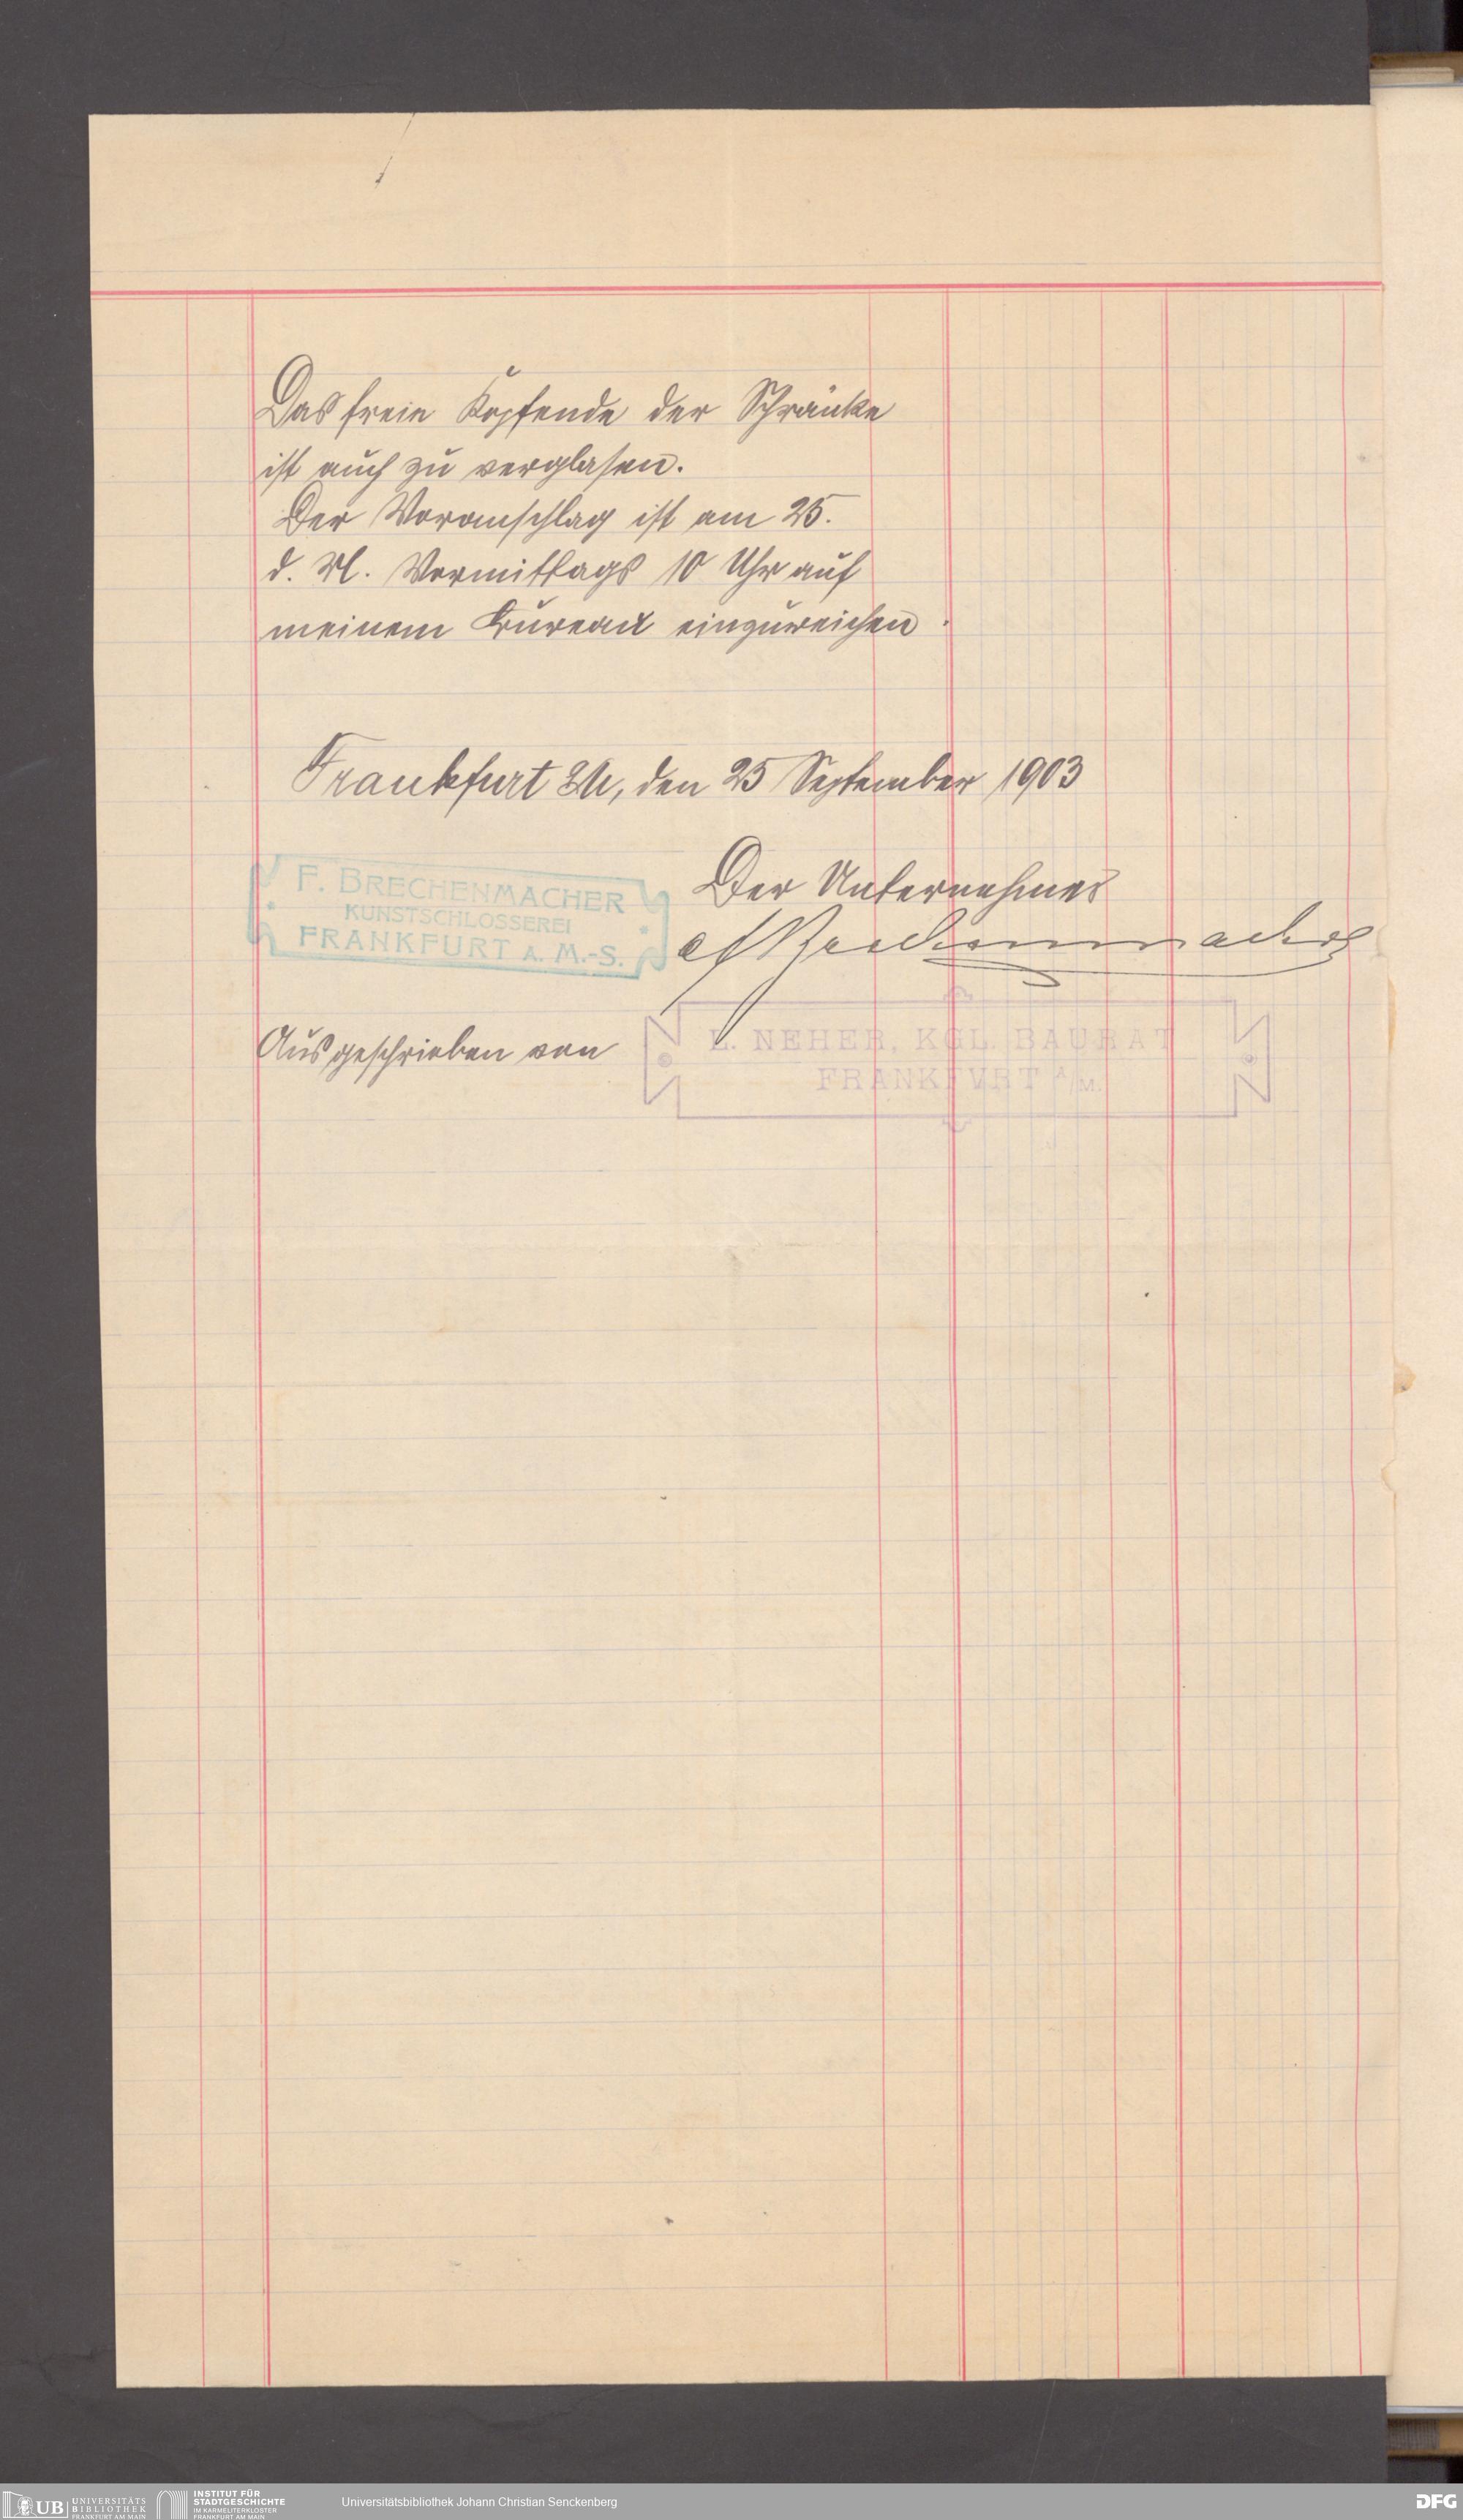 Das freie Kopfende der Schränke
ist auch zu verglasen.
Der Voranschlag ist am 25.
d. M. Vormittags 10 Uhr auf
meinem Bureau einzureichen.
Frankfurt a/M, den 25 September 1903
F. BRECHENMACHER
KUNSTSCHLOSSEREI
FRANKFURT A. M.-S.
Der Unternehmer
F Brechenmacher
Ausgeschrieben von
L. NEHER, KGL. BAURAT
FRANKFVRT A/M.
UB
UNIVERSITÄTS
BIBLIOTHEK
FRANKFURT AM MAIN
INSTITUT FÜR
STADTGESCHICHTE
IM KARMELITERKLOSTER
FRANKFURT AM MAIN
Universitätsbibliothek Johann Christian Senckenberg
DFG